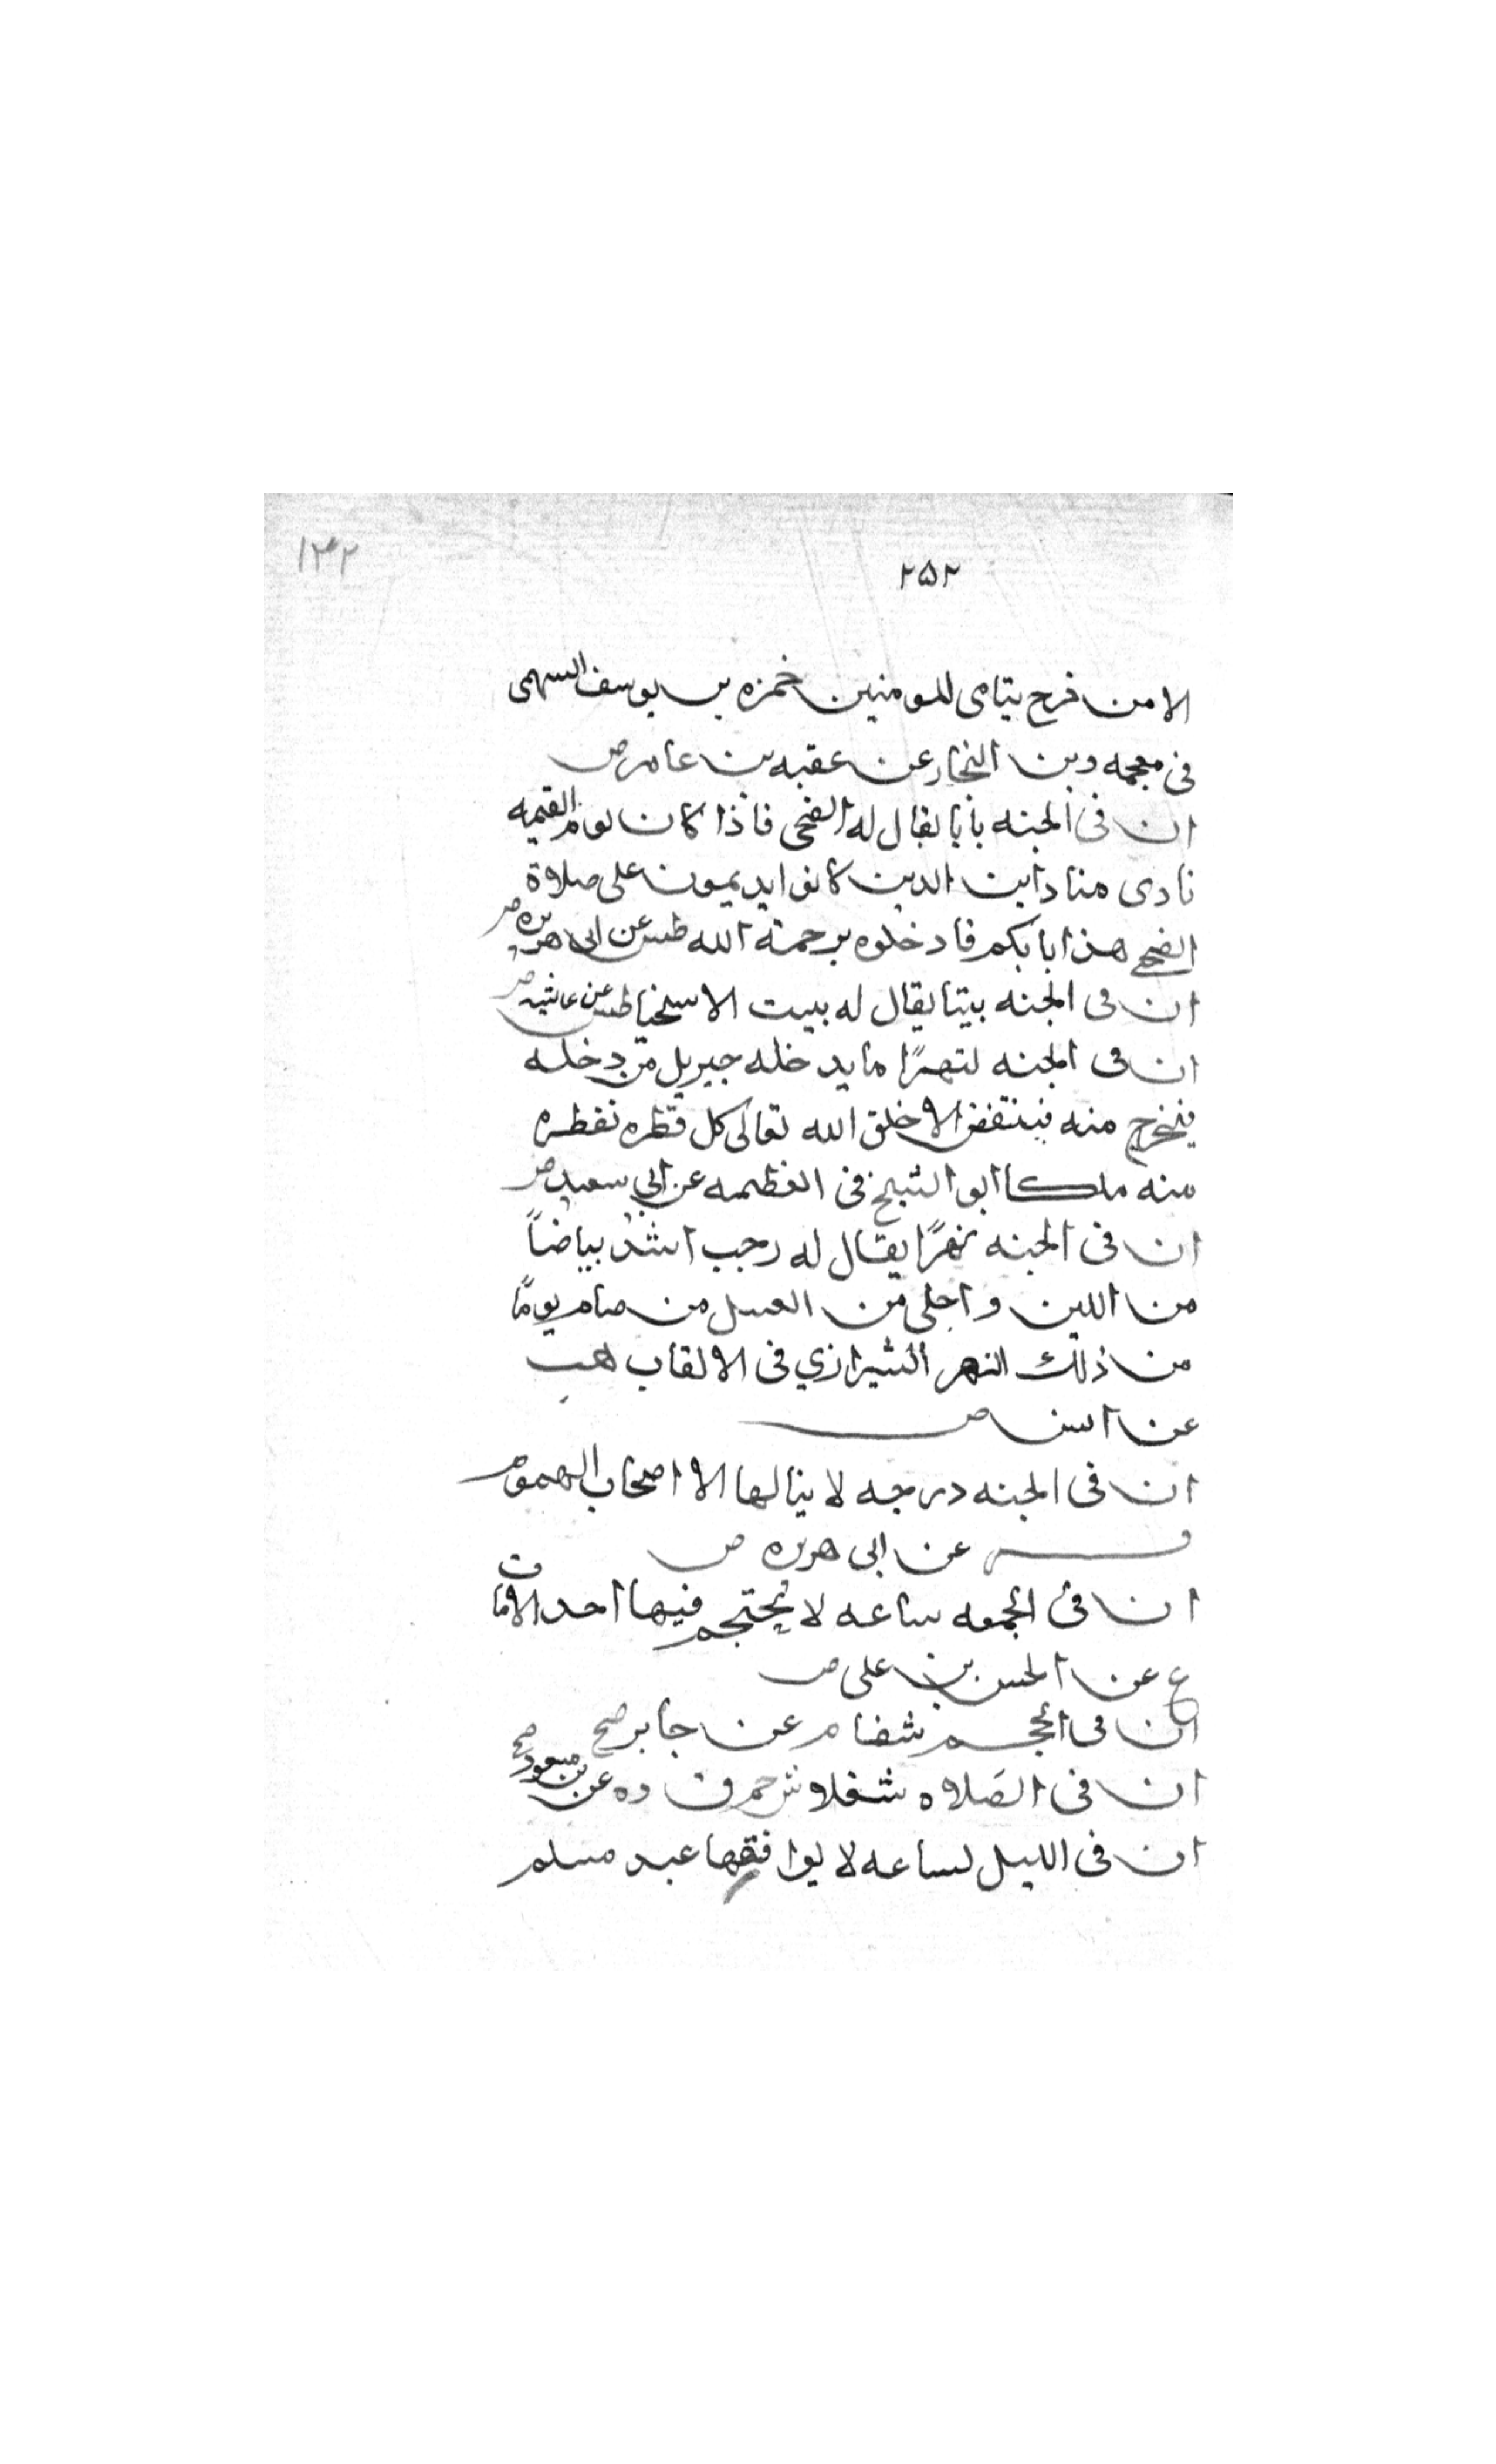 ١٣٢
٢٥٢
الا من فرح يتامى المومنين حمزه بن يوسف السهمى
فى معجمه وبن النجار عن عقبه بن عامر ض
ان فى الجنه بابا يقال له الضحى فاذا كان يوم القيمه
نادى مناد اين الدين كانوا يديمون على صلاة
الضحى هذا بابكم فادخلوه برحمة الله طس عن ابى هريره ض
ان فى الجنه بيتا يقال له بيت الاسخيا طس عن عايشه ض
ان فى الجنه لنهرًا ما يدخله جبريل من دخله
فيخرج منه فينتفض الا خلق الله تعالى كل قطره تقطره
منه ملكا ابو الشيخ فى العظمه عن ابي سعيد ض
ان فى الجنه نهرًا يقال له رجب اشد بياضاً
من اللبن واحلى من العسل من صام يومًا
من ذلك النهر الشيرازي فى الالقاب هب
عن انس ض
ان فى الجنه درجه لا ينالها الا اصحاب الهموم
فر عن ابى هريره ض
ان فى الجمعه ساعه لا يحتجم فيها احد الا مات
ع عن الحسين بن على ض
ان فى الحجم شفا م عن جابر صح
ان فى الصَلاه شغلا ش حم ق د ه عن بن مسعود صح
ان فى الليل لساعه لا يوافقها عبد مسلم